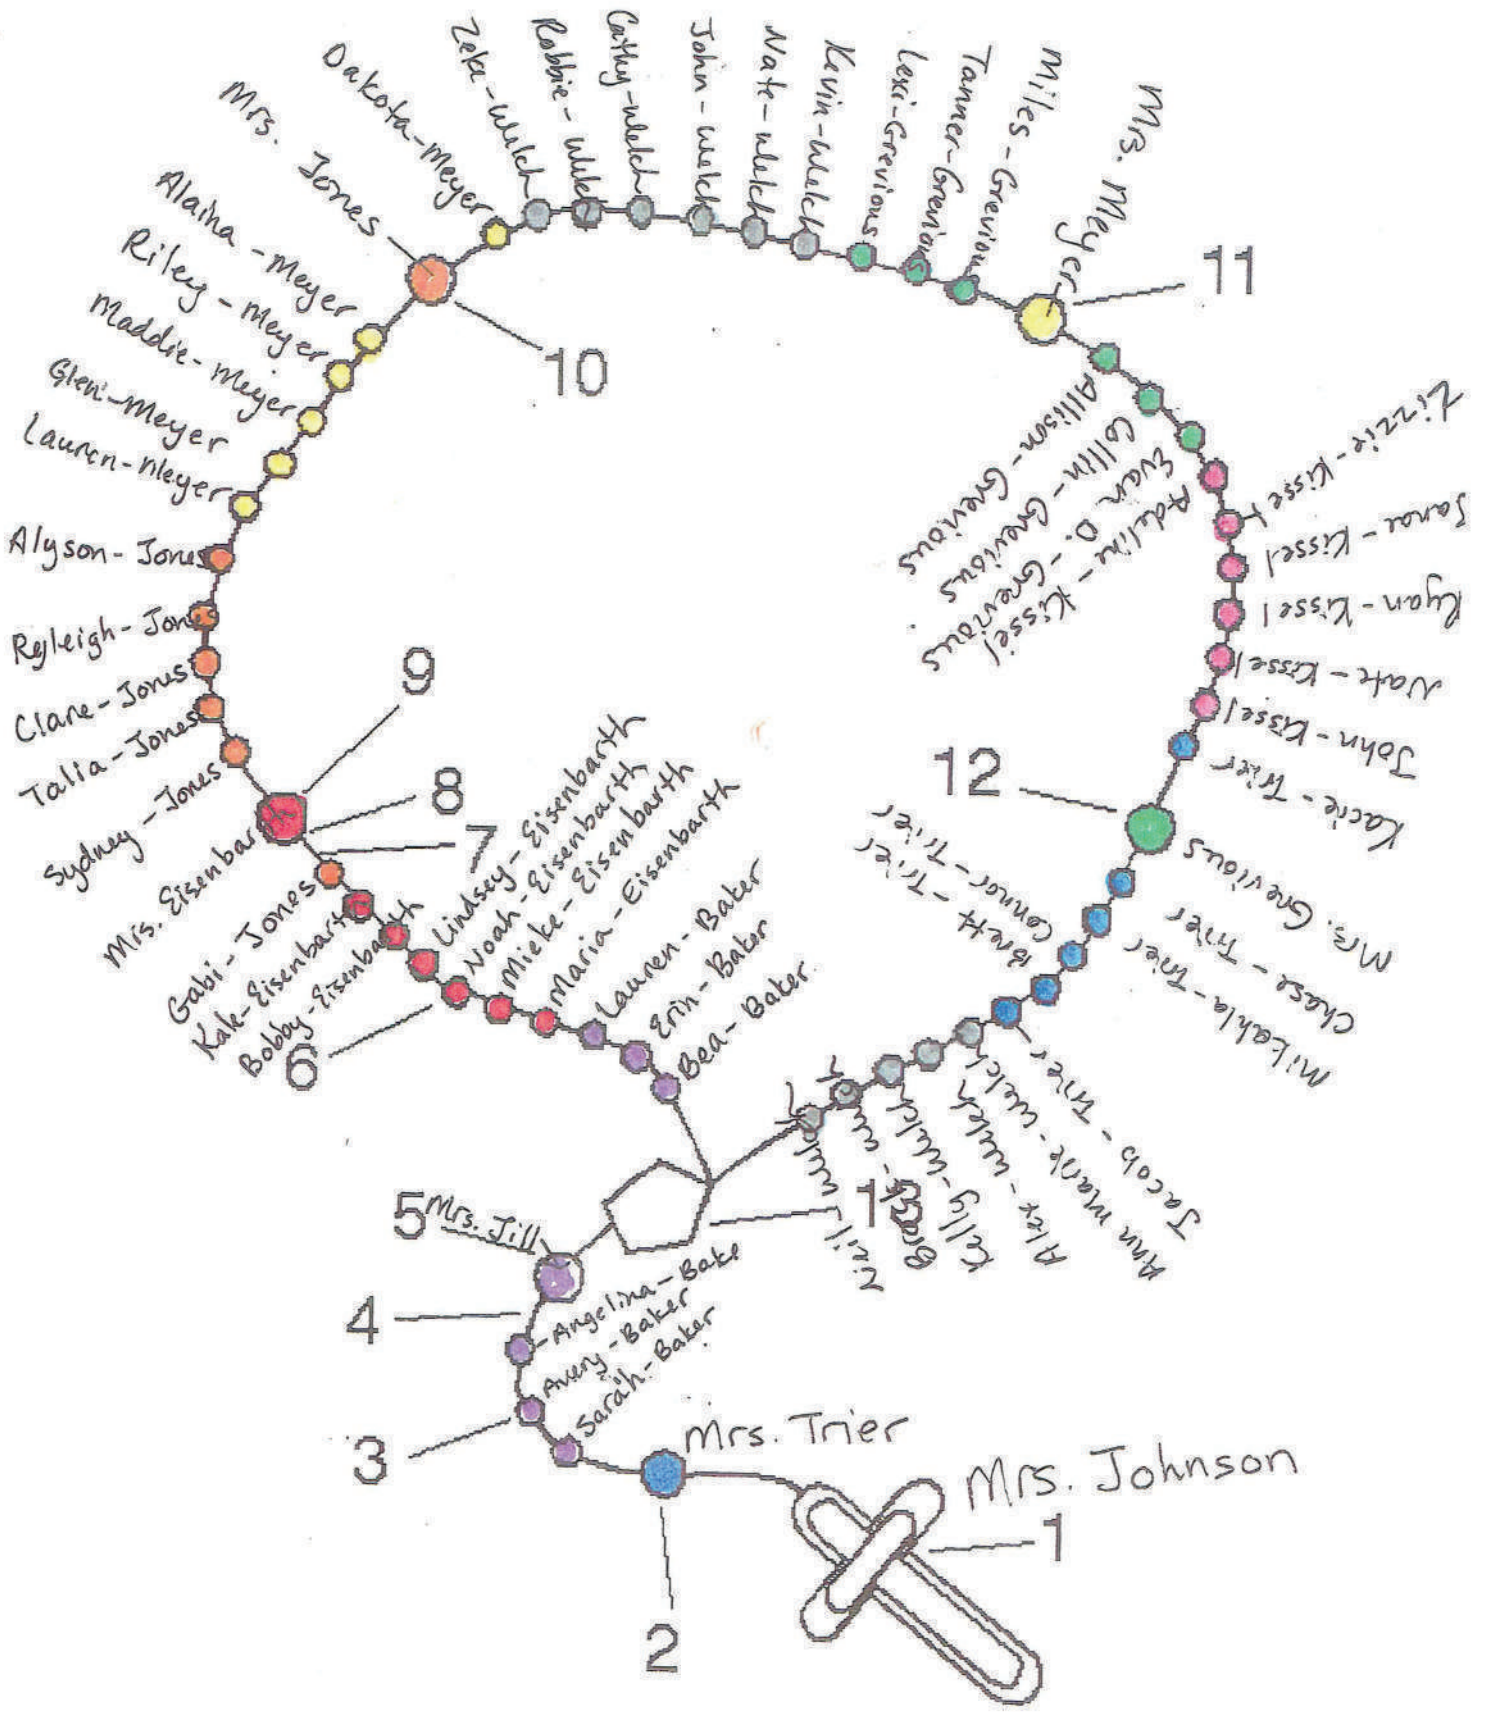 Mrs. Johnson
1
Mrs. Trier
2
Sarah-Baker
Avery-Baker
3
Angelina-Bake
4
Mrs. Jill
5
Bea-Baker
Erin-Baker
Lauren-Baker
Maria-Eisenbarth
Mieke-Eisenbarth
Noah-Eisenbarth
6
Lindsey-Eisenbarth
Bobby-Eisenbarth
Kale-Eisenbarth
Gabi-Jones
7
8
Mrs. Eisenbarth
9
Sydney-Jones
Talia-Jones
Clare-Jones
Ryleigh-Jones
Alyson-Jones
Lauren-Meyer
Glen-Meyer
Maddie-Meyer
Riley-Meyer
Alaina-Meyer
Mrs. Jones
10
Dakota-Meyer
Zeke-Welch
Robbie-Welch
Cathy-Welch
John-Welch
Nate-Welch
Kevin-Welch
Lexi-Grevious
Tanner-Grevious
Miles-Grevious
Mrs. Meyer
11
Allison-Grevious
Collin-Grevious
Evan D.-Grevious
Adeline-Kissel
Lizzie-Kissel
Janae-Kissel
Ryan-Kissel
Nate-Kissel
John-Kissel
Kacie-Trier
12
Mrs. Grevious
Chase-Trier
Mikahla-Trier
Connor-Trier
Brett-Trier
Jacob-Trier
Ann Marie-Welch
Alex-Welch
Kelly-Welch
13